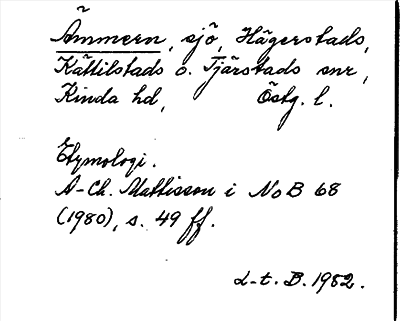 Ämmern, sjö, Hägerstads,
Kättilstads o. Tjärstads snr,
Kinda hd, Östg. l.
Etymologi.
A-Ch. Mattisson i NoB 68
(1980), s. 49 ff.
L-t. B. 1982.